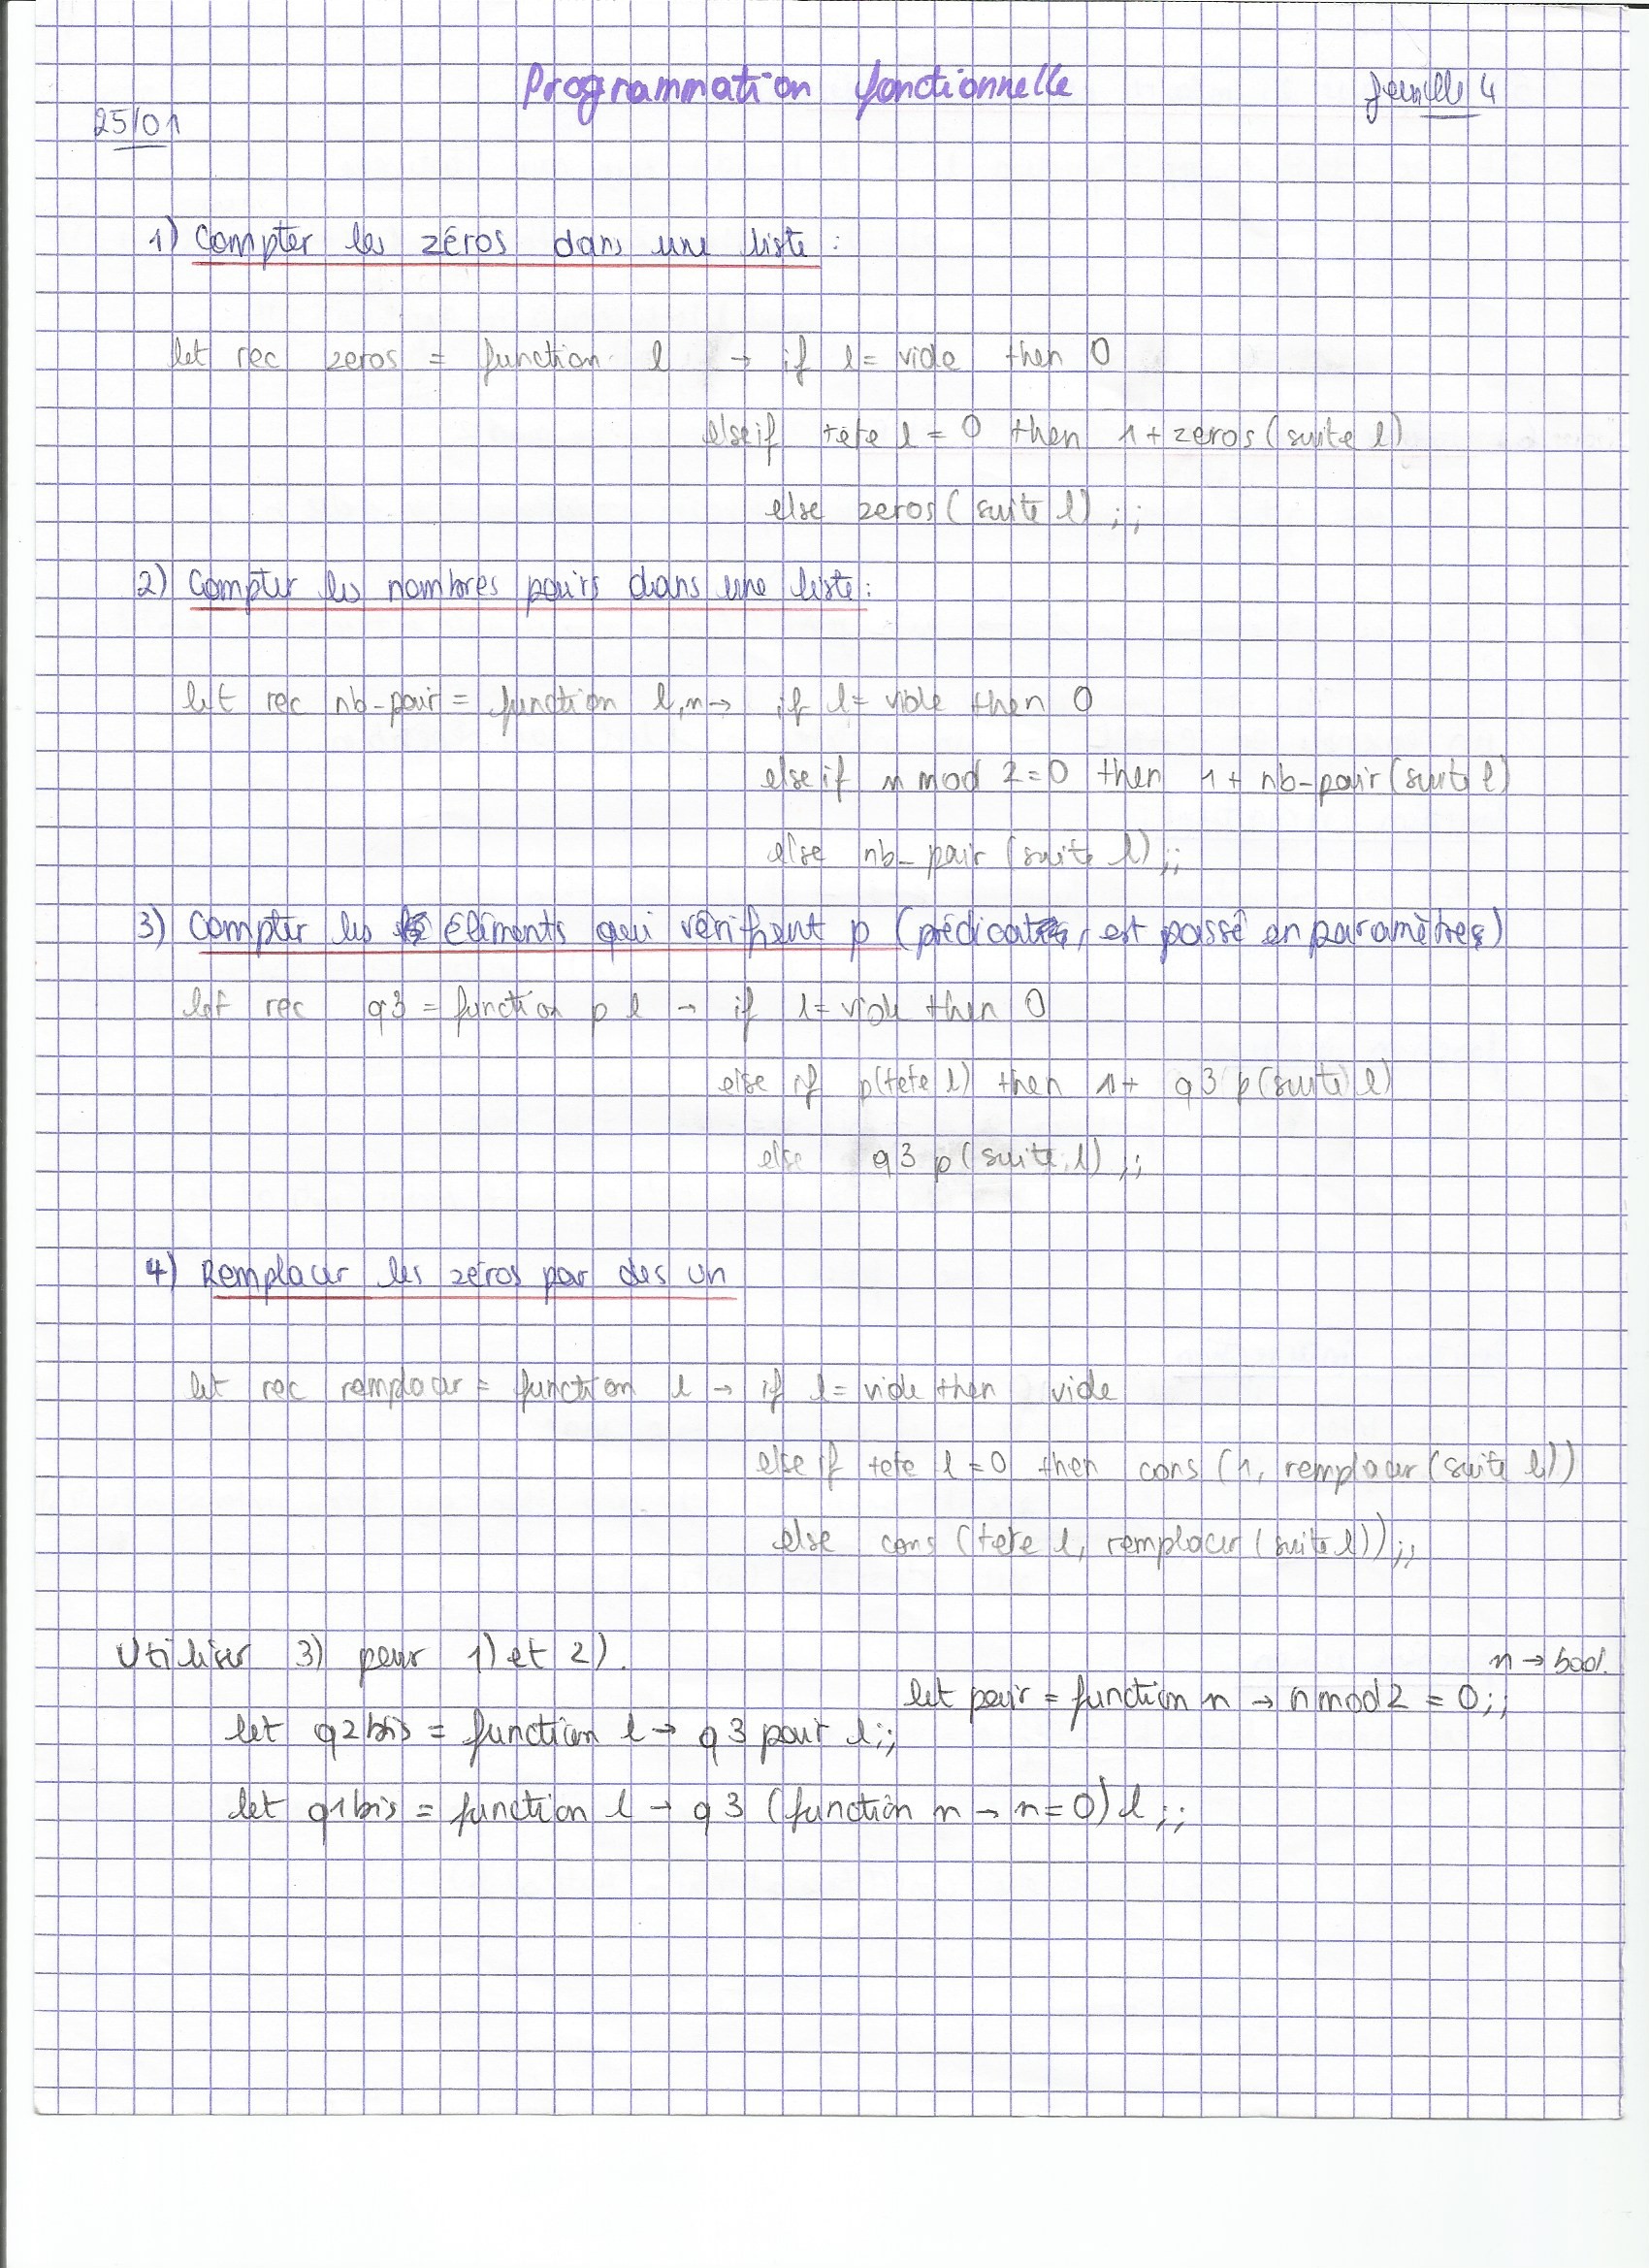 Programmation fonctionnelle
feuille 4
25/01
1) Compter les zéros dans une liste :
let rec zeros = function l → if l = vide then 0
else if tete l = 0 then 1 + zeros (suite l)
else zeros (suite l) ;;
2) Compter les nombres pairs dans une liste :
let rec nb-pair = function l, n → if l = vide then 0
else if n mod 2 = 0 then 1 + nb-pair (suite l)
else nb-pair (suite l) ;;
3) Compter les éléments qui vérifient p (prédicat, est passé en paramètre)
let rec q3 = function p l → if l = vide then 0
else if p(tete l) then 1 + q3 p (suite l)
else q3 p (suite l) ;;
4) Remplacer les zéros par des un
let rec remplacer = function l → if l = vide then vide
else if tete l = 0 then cons (1, remplacer (suite l))
else cons (tete l, remplacer (suite l)) ;;
Utiliser 3) pour 1) et 2).
n → bool.
let pair = function n → n mod 2 = 0 ;;
let q2bis = function l → q3 pair l ;;
let q1bis = function l → q3 (function n → n = 0) l ;;